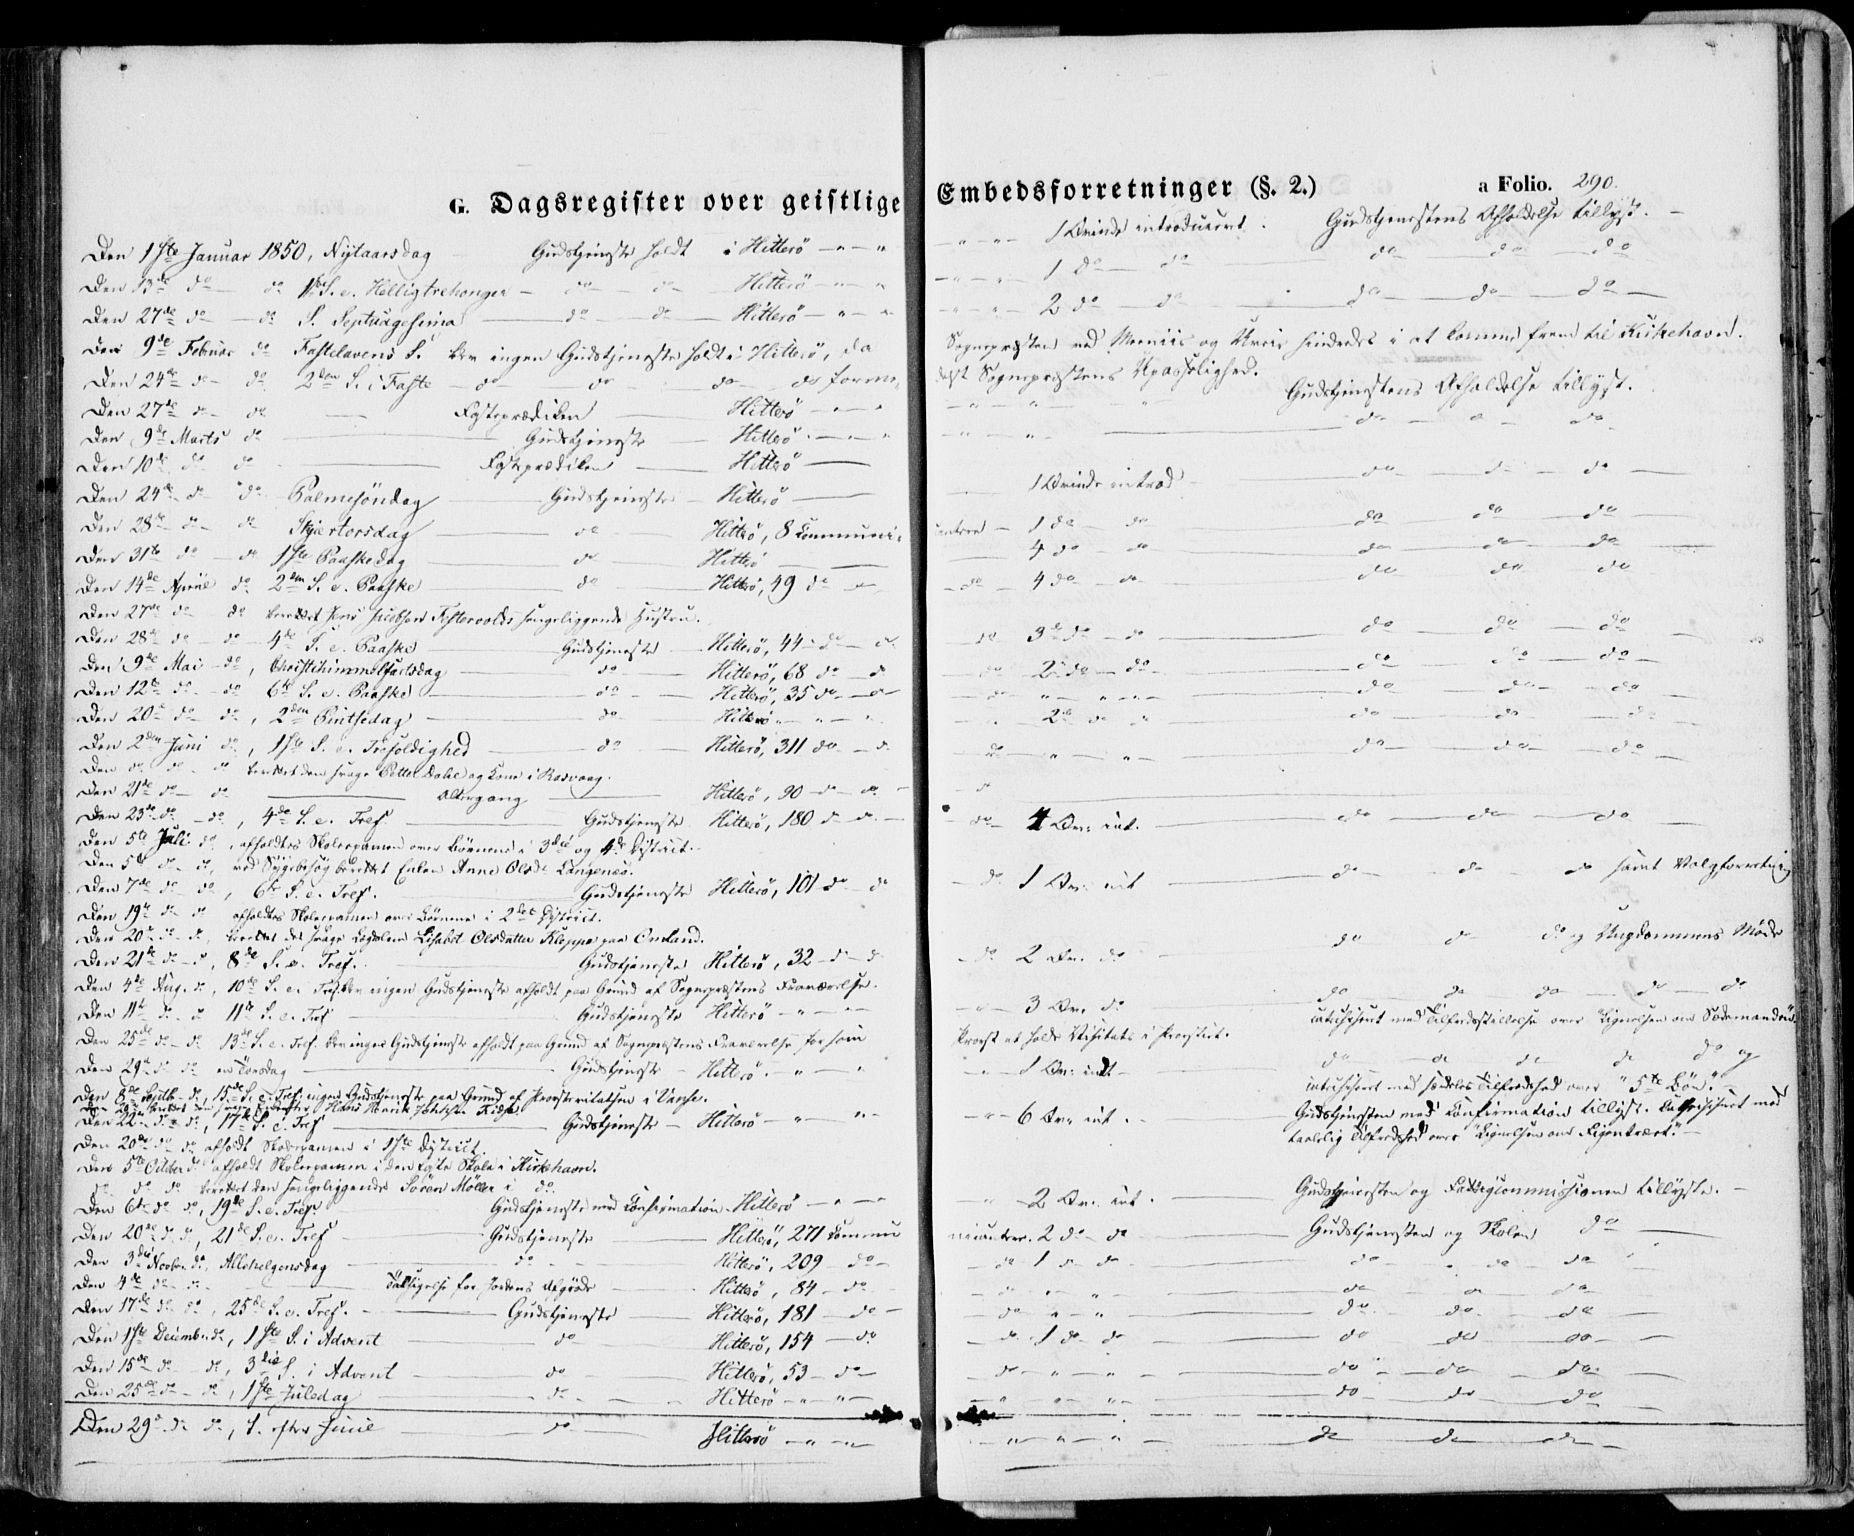 G. Dagsregister over geistlige Embedsforretninger (§. 2.) a Folio. 290.
Den 1ste Januar 1850, Nytaarsdag Gudstjeneste holdt i Hitterö 1 Qvinde introduceret. Gudstjenestens Afholdelse tillyst.
Den 13de do do 1ste S. e. Helligtrekonger do do Hitterö 1 do do do do do
Den 27de do do S. Septuagesima do do Hitterö 2 do do do do do
Den 9de Februar do Fastelavens S. blev ingen Gudstjeneste holdt i Hitterö, da Sognepræsten ved og hindredes i at komme frem til Kirkehavn.
Den 24de do do 2den S. i Faste do do do do Sognepræstens Upasselighed.
Den 27de do do Fasteprædiken Hitterö Gudstjenestens Afholdelse tillyst.
Den 9de Marts do Gudstjeneste Hitterö do do
Den 10de do do Fasteprædiken Hitterö
Den 24de do do Palmesöndag Gudstjeneste Hitterö 1 Qvinde introd do do do
Den 28de do do Skjærtorsdag do Hitterö, 8 Communicantere 1 do do do do do
Den 31te do do 1ste Paaskedag do Hitterö 4 do do do do do
Den 14de April do 2den S. e. Paaske do Hitterö, 49 do do 4 do do do do do
Den 27de do do berettet Jens Jacobsen sengeliggende Hustru.
Den 28de do do 4de S. e. Paaske Gudstjeneste Hitterö, 44 do do 3de do do do do do
Den 9de Mai do, Christihimmelfartsdag do Hitterö, 68 do do 2de do do do do do
Den 12te do do 6te S. e. Paaske do Hitterö, 35 do do do do do
Den 20de do do, 2den Pintsedag do Hitterö 2de do do do do
Den 2den Juni do, 1ste S. e. Trefoldighed do Hitterö, 311 do do do do do
Den do do do berettet den svage Petter Dahl og Kone i Rasvaag.
Den 21de do do Altergang Hitterö, 90 do do do
Den 23de do do, 4de S. e. Tref Gudstjeneste Hitterö, 180 do do do 4 Qv: int. do do do
Den 5te Juli do, afholdtes Skoleexamen over Börnene i 3die og 4de District.
Den 5te do do, ved Sygebesög berettet Enken Anne Olsdr Langenes.
Den 7de do do, 6te S. e. Tref. Gudstjeneste Hitterö, 101 do do do 1 Qv: int do do do samt Valgforretning
Den 19de do do afholdtes Skoleexamen over Börnene i 2det District.
Den 20de do do, berettet det svage Lægdslem Lisabet Olsdatter Kleppe paa Omland.
Den 21de do do, 8de S. e. Tref. Gudstjeneste Hitterö, 32 do do do 2 Qv. do do do do og Ungdommens Möde
Den 4de Aug. do, 10de S. e. Tref. blev ingen Gudstjeneste afholdt paa Grund af Sognepræstens Fraværelse.
Den 11te do do 11te S. e. Tref Gudstjeneste Hitterö 3 Qv. do do do do do do
catechiseret med Tilfredsstillelse over Lignelsen om Sædemanden
Den 25de do do 13de S. e. Tref. blev ingen Gudstjeneste afholdt paa Grund af Sognepræstens Fraværelse for som Provst at holde Visitats i Provstiet.
Den 29de do do en Torsdag Gudstjeneste Hitterö 1 Qv: int do do do do do og
catechiseret med særdeles Tilfredshed over "5te Bön."
Den 8de Septb. do, 15de S. e. Tref. ingen Gudstjeneste paa Grund af Provstevisitatsen i Vanse.
Den 22 do do, 17de S. e. Tref Gudstjeneste Hitterö 6 Qv: int. Gudstjenesten med Confirmation tillyst. Catechiseret med
taalelig Tilfredshed over "Lignelsen om Figentræet."
Den 20de do do afholdt Skoleexamen i 1ste District.
Den 5te October do afholdt Skoleexamen i den faste Skole i Kirkehavn.
do do do berettet den sengeliggende Sören Möller i do.
Den 6te do do, 19de S. e. Tref Gudstjeneste med Confirmation Hitterö 2 Qv. int. Gudstjenesten og Fattigcommissionen tillyste.
Den 20de do do, 21de S. e. Tref Gudstjeneste Hitterö, 271 Communicantere. 2 do do Gudstjenesten og Skolen do
Den 3die Novber do, Allehelgensdag do Hitterö, 209 do do 1 do do do do do
Den 4de do do Taksigelse for Jordens Afgröde Hitterö, 84 do do do do do
Den 17de do do, 25de S. e. Tref. Gudstjeneste Hitterö, 181 do do do do do
Den 1ste Decemb. do, 1ste S. i Advent do Hitterö, 154 do do 1 do do do do do
Den 15de do do, 3die S. i Advent do Hitterö, 53 do do do do do
Den 25de do do, 1ste Juledag do Hitterö do do do
Den 29de do do, S. efter Juul do Hitterö do do do